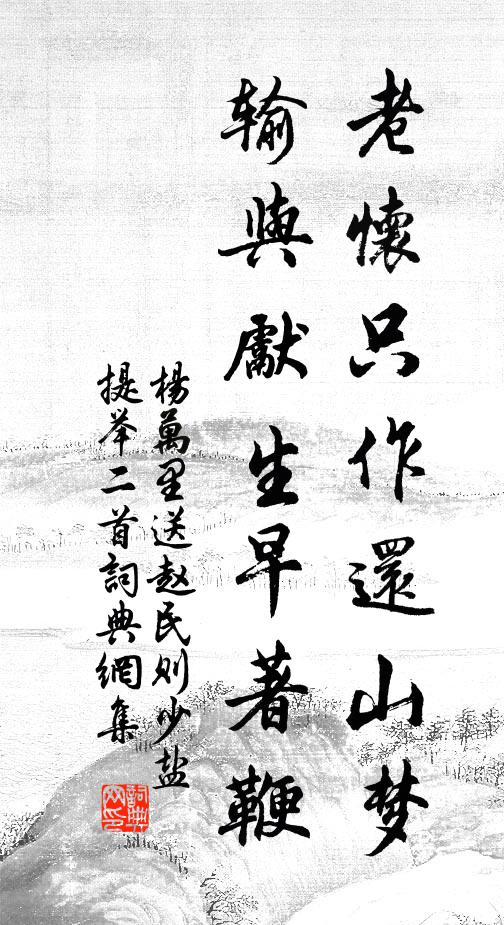 老懷只作還山梦
输與獻生早著鞭
楊萬里送赵民则少盐
提举二首詞典網集